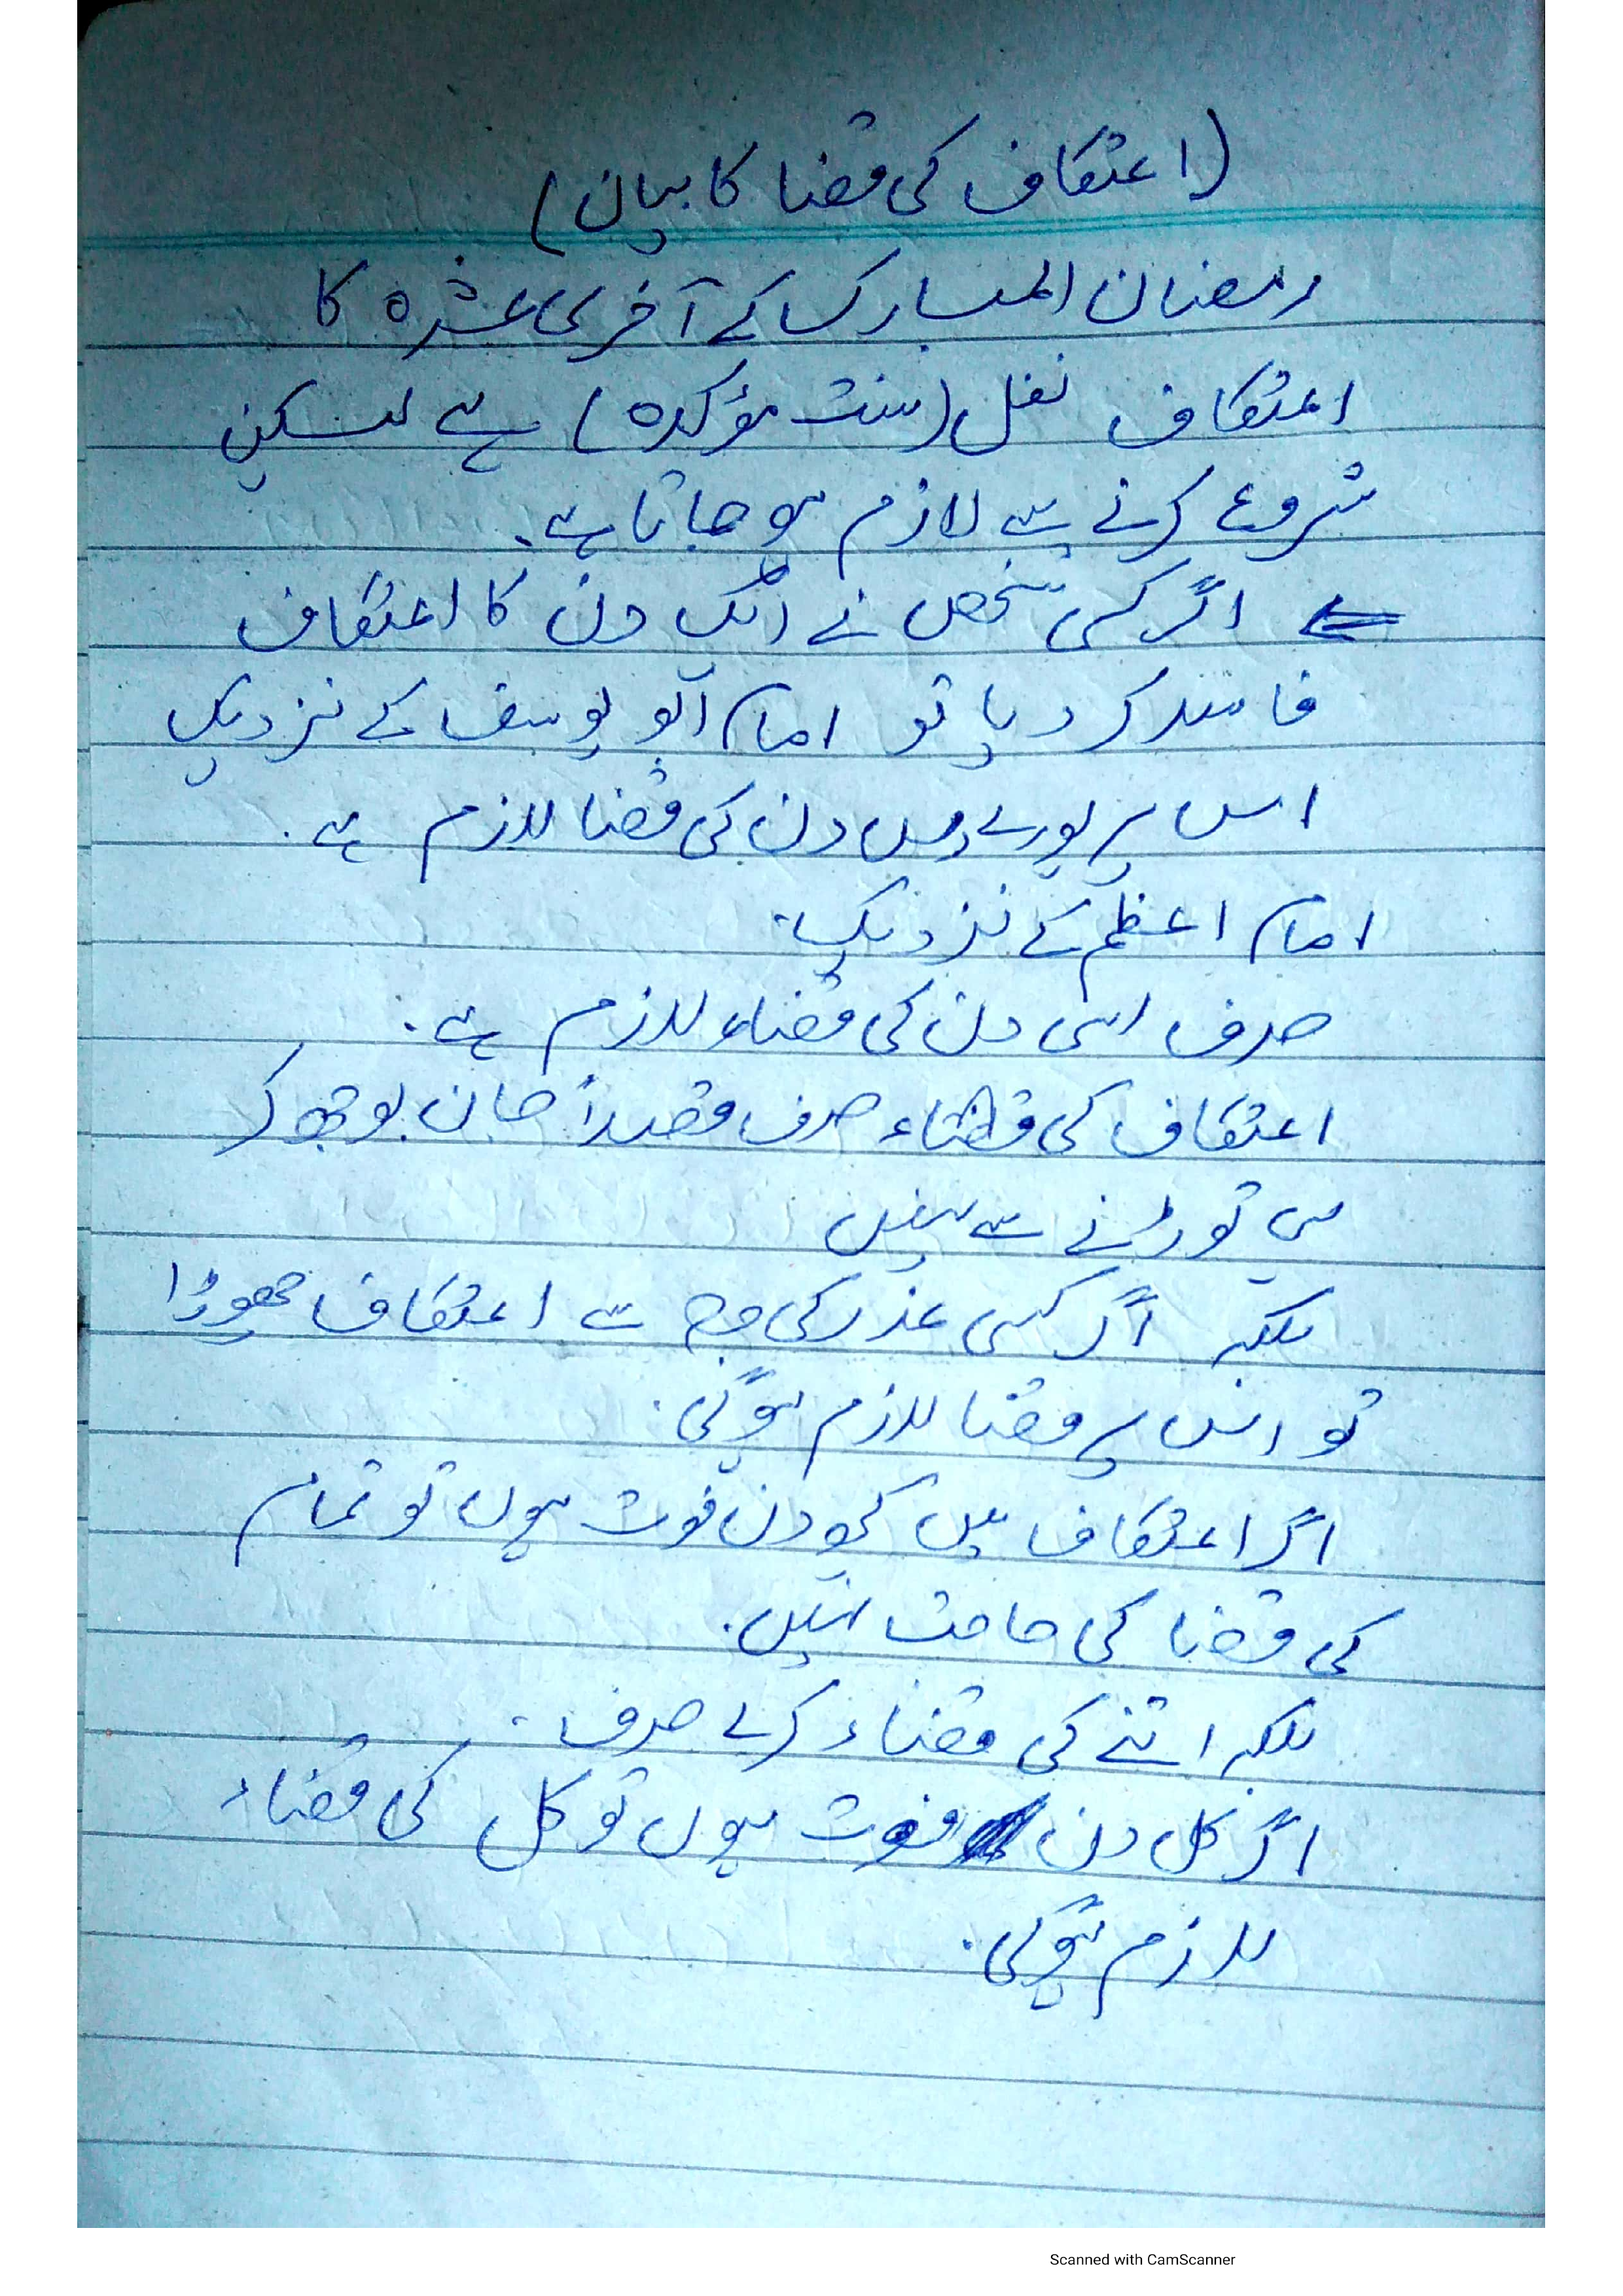 (اعتکاف کی قضا کا بیان)
رمضان المبارک کے آخری عشرہ کا
اعتکاف نفل (سنت مؤکدہ) ہے لیکن
شروع کرنے سے لازم ہو جاتا ہے۔
⇐ اگر کسی شخص نے ایک دن کا اعتکاف
فاسد کر دیا تو امام ابو یوسف کے نزدیک
اس پر پورے دس دن کی قضا لازم ہے۔
امام اعظم کے نزدیک۔
صرف اسی دن کی قضاء لازم ہے۔
اعتکاف کی قضاء صرف قصداً جان بوجھ کر
ہی توڑنے سے نہیں
بلکہ اگر کسی عذر کی وجہ سے اعتکاف چھوڑا
تو اس پر قضا لازم ہوگی۔
اگر اعتکاف میں کچھ دن فوت ہوں تو تمام
کی قضا کی حاجت نہیں۔
بلکہ اتنے کی قضاء کرے صرف۔
اگر کل دن فوت ہوں تو کل کی قضاء
لازم ہوگی۔
Scanned with CamScanner